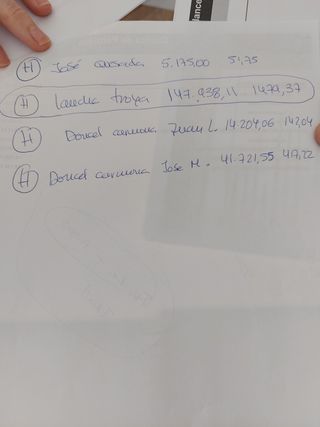 H José Quesada 5.175,00 51,75
H Landra troya 147.938,11 1479,37
H Doncel carmona Juan L. 14.204,06 142,04
H Doncel carmona Jose M. 41.721,55 417,22